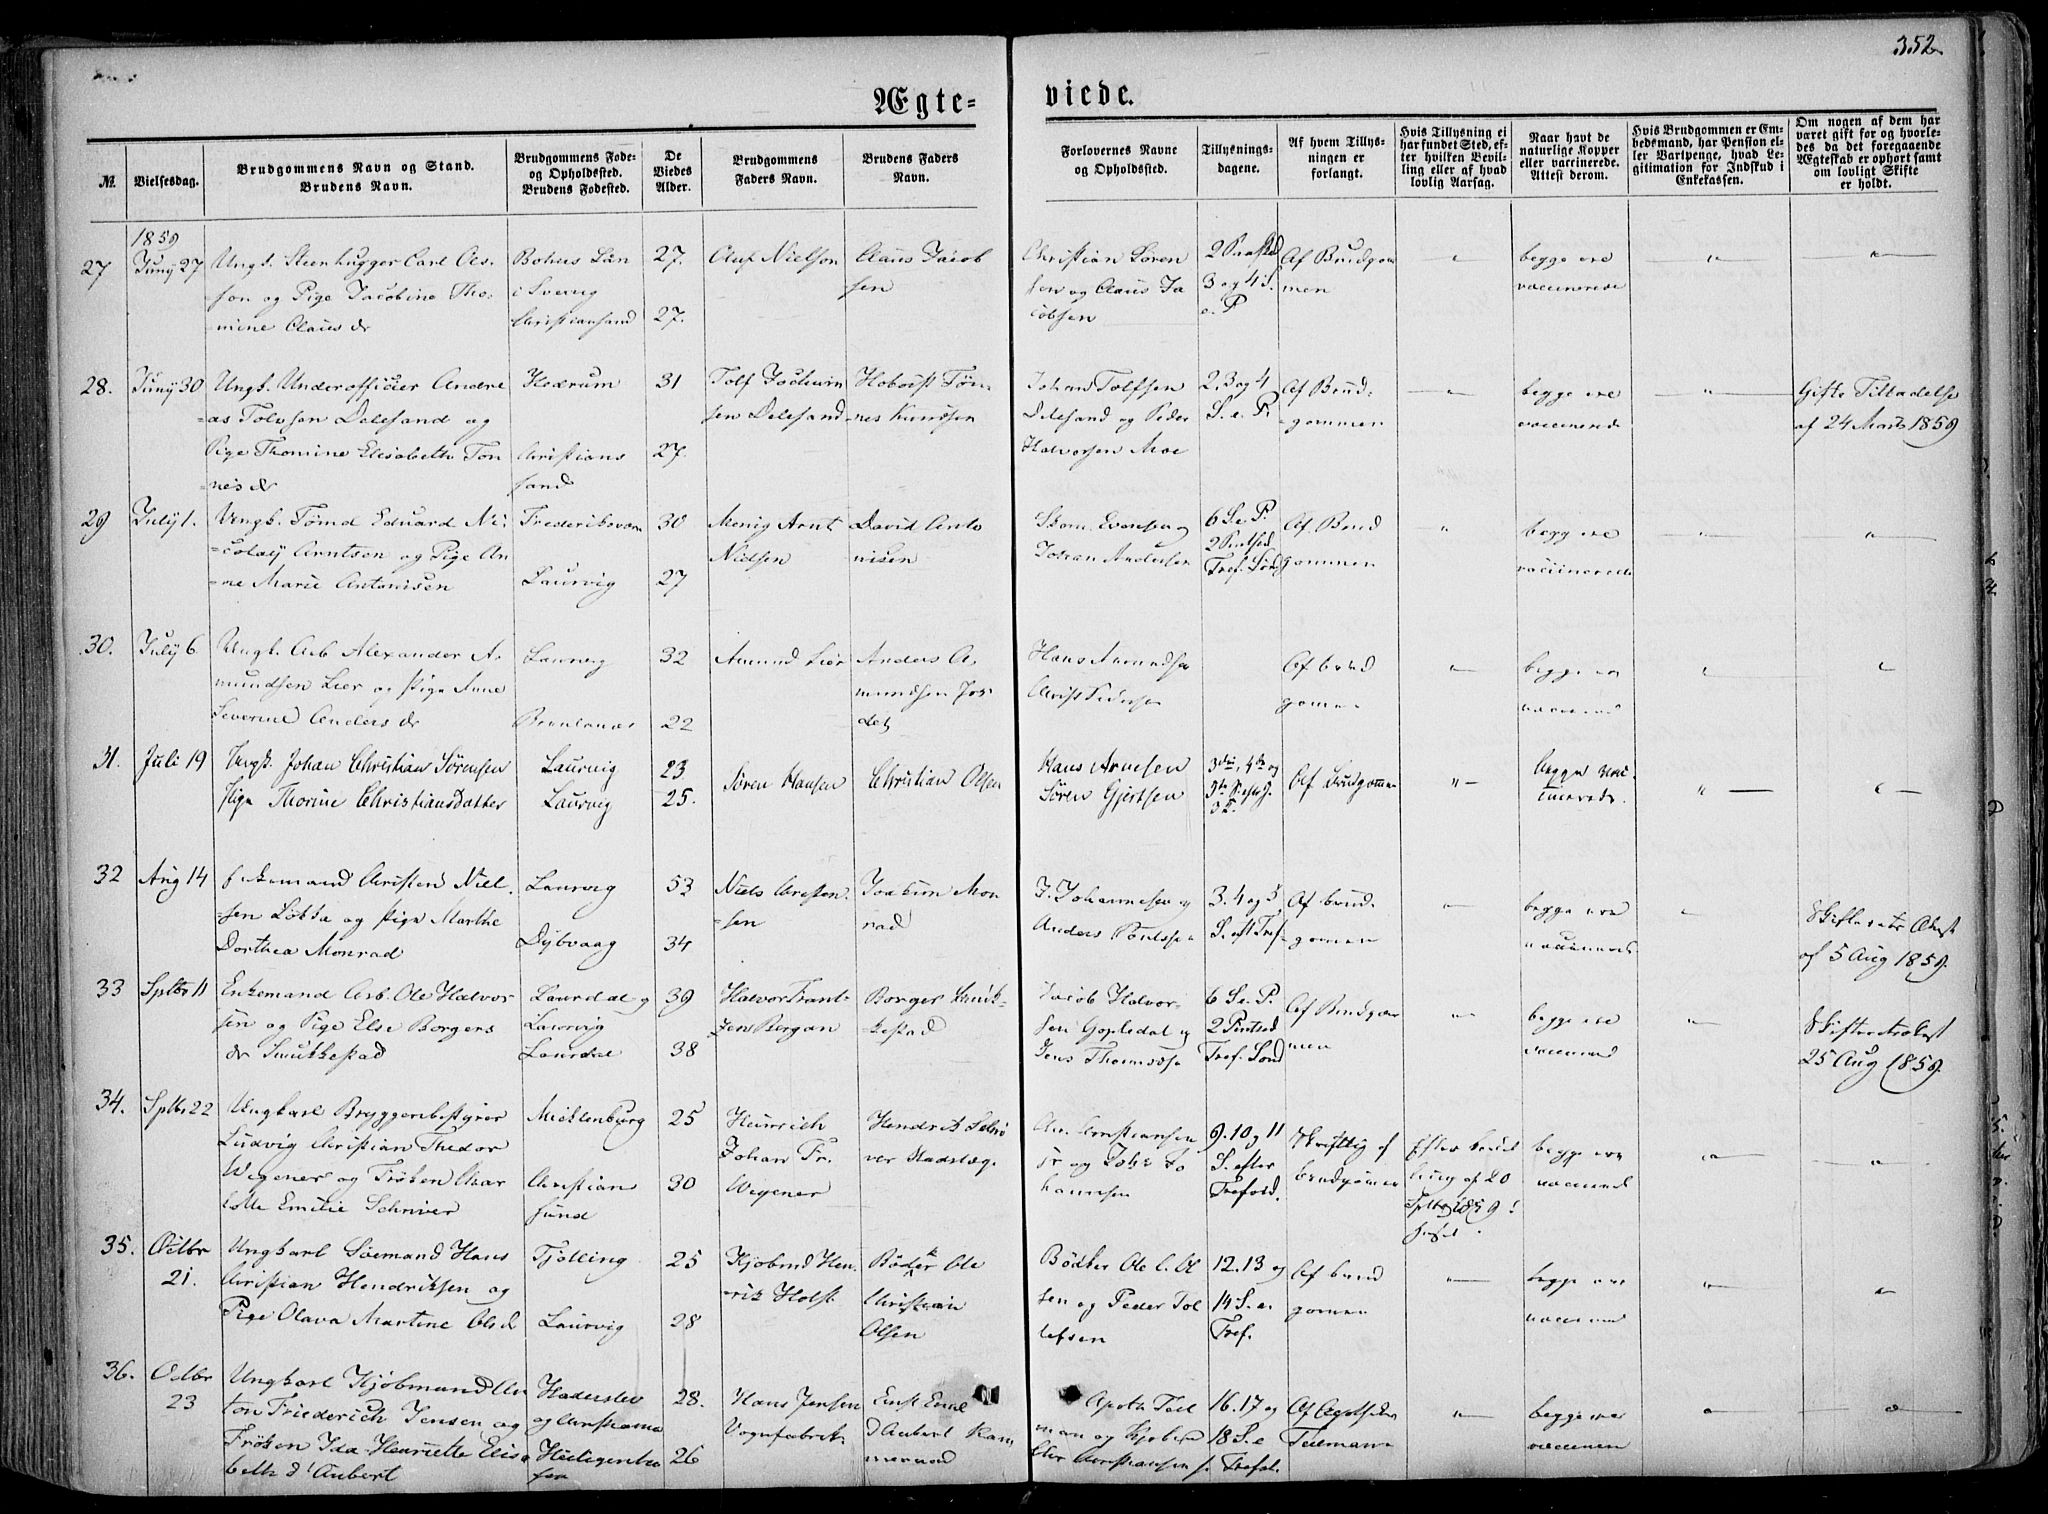 352
Ægte=
viede.
№.
Vielsesdag.
Brudgommens Navn og Stand.
Brudens Navn.
Brudgommens Føde-
og Opholdssted.
Brudens Fødested.
De
Viedes
Alder.
Brudgommens
Faders Navn.
Brudens Faders
Navn.
Forlovernes Navne
og Opholdssted.
Tillysnings-
dagene.
Af hvem Tillys-
ningen er
forlangt.
Hvis Tillysning ei
har fundet Sted, ef-
ter hvilken Bevil-
ling eller af hvad
lovlig Aarsag.
Naar havt de
naturlige Kopper
eller vaccinerede.
Attest derom.
Hvis Brudgommen er Em-
bedsmand, har Pension el-
ler Vartpenge, hvad Le-
gitimation for Indskud i
Enkekassen.
Om nogen af dem har
været gift før og hvorle-
des da det foregaaende
Ægteskab er ophørt samt
om lovligt Skifte
er holdt.
1859
27
Juny 27
Ungk. Steenhugger Carl Ols-
son og Pige Jacobine Tho-
mine Claus dr
Bohus Län
i Sverig
Christiansand
27.
27.
Oluf Nielson
Claus Jacob
sen
Christian Sören
sen og Claus Ja
cobsen
3 og 4 S.
e. P
Af Brudgom
men
begge ere
vaccinerede
28.
Juny 30
Ungk. Underofficier Andre
=as Tolvsen Delesand og
Pige Thomine Elisabeth Ton
=nes dr
Hedrum
Christians
sand
31
27.
Tolf Jochum
sen Delesand
Tön-
nes Knudsen
Johan Tolfsen
Delesand og Peder
Halvorsen Moe
2, 3 og 4
S. e. P.
Af Brud-
=gommen
begge ere
vaccinerede
Gifte Tilladelse
af 24 Marts 1859
29
July 1.
Ungk. Tömd Eduard Ni-
=colay Arntsen og Pige An
=ne Marie Antonisen
Frederiksværn
Laurvig
30
27
Arnt
Nielsen
David Anto
nisen
Evensen og
Johan Andersen
6 S. e. P.
2 Pintsed
Tref. Sönd
Af Brud
gommen
begge ere
vaccinerede
30.
July 6
Ungk. Arb Alexander A-
mundsen Lier og Pige Anne
Severine Anders dr
Laurvig
Brunlanæs
32
22
Amund Lier
Anders A-
mundsen
Hans Amundsen
Christ Pedersen
Af brud
gommen
begge ere
vaccinered
31.
Juli 19
Ungk. Johan Christian Sörensen
Pige Thorine Christiansdatter
Laurvig
Laurvig
23
25.
Sören Hansen
Christian Olsen
Hans Arnesen
Sören Gjertsen
Af Brudgommen
begge vac-
cinerede.
32
Aug 14
Enkemand Christen Niel-
=sen Lökka og Pige Marthe
Dorthea Monrad
Laurvig
Dybvaag
53
34
Niels Christen-
=sen
Joachim Mon
rad
J. Johannesen og
Anders
3. 4 og 5
S. eft Tref-
Af brud-
gommen
begge ere
vaccinered
af 5 Aug 1859.
33
Sptbr 11
Enkemand Arb. Ole Halvor
sen og Pige Else Borgers
dr Smukkestad
Laurdal og
Laurvig
Laurdal
39
38
Halvor Frant-
zen Bergan
Borger Smuk-
kestad
Jacob Halvor-
sen Gopledal og
Jens Thomsen
6 S. e. P.
2 Pintsed
Tref. Sönd
Af Brudgom
men
begge ere
vaccinered
25 Aug 1859.
34.
Sptbr 22
Ungkarl Bryggeribestyrer
Ludvig Christian Thedor
Wegener og Fröken Char
lotte Emilie Schriver
Mecklenburg
Christian
sund
25
30
Heinrich
Johan Fr.
Wegener
Hendrik Schri
ver Stadslæge
Christiansen
jr og Johs Jo
hannsen
9. 10 og 11
S. efter
Trefold.
Skriftlig af
brudgommen
Efter bevil
ling af 20
Sptbr 1859
begge ere
vaccinered
35.
Octbr
21.
Ungkarl Söemand Hans
Christian Hendriksen og
Pige Olava Martine Ols d
Tjölling
Laurvig
25
28
Kjöbmd Hen-
rik Holst
Bödker Ole
Christian
Olsen
Bödker Ole C. Ol
sen og Peder Tol
lefsen
12. 13 og
14 S. e.
Tref.
Af brud
gommen
begge ere
vaccinered
36.
Octbr
23
Ungkarl Kjöbmand An
ton Friederich Jensen og
Fröken Ida Henriette Elisa
beth d'Aubert
Haderslev
og Christiania
Heiligenha
fen
28.
26
Hans Jensen
Vognfabrik.
Ernst Emil
d'Aubert Kam
merraad
Apoth. Teil
man og Kjöbm
Chr Christiansen jr.
16. 17 og
18 S. e
Trefol.
Af Apotheker
Teilmann
begge ere
vaccineret